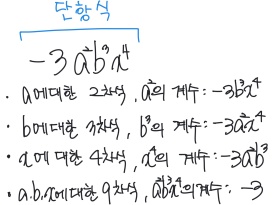 단항식
-3a²b³x⁴
· a에대한 2차식, a²의 계수: -3b³x⁴
· b에대한 3차식, b³의 계수: -3a²x⁴
· x에 대한 4차식, x⁴의 계수: -3a²b³
· a.b.x에대한 9차식, a²b³x⁴의계수: -3